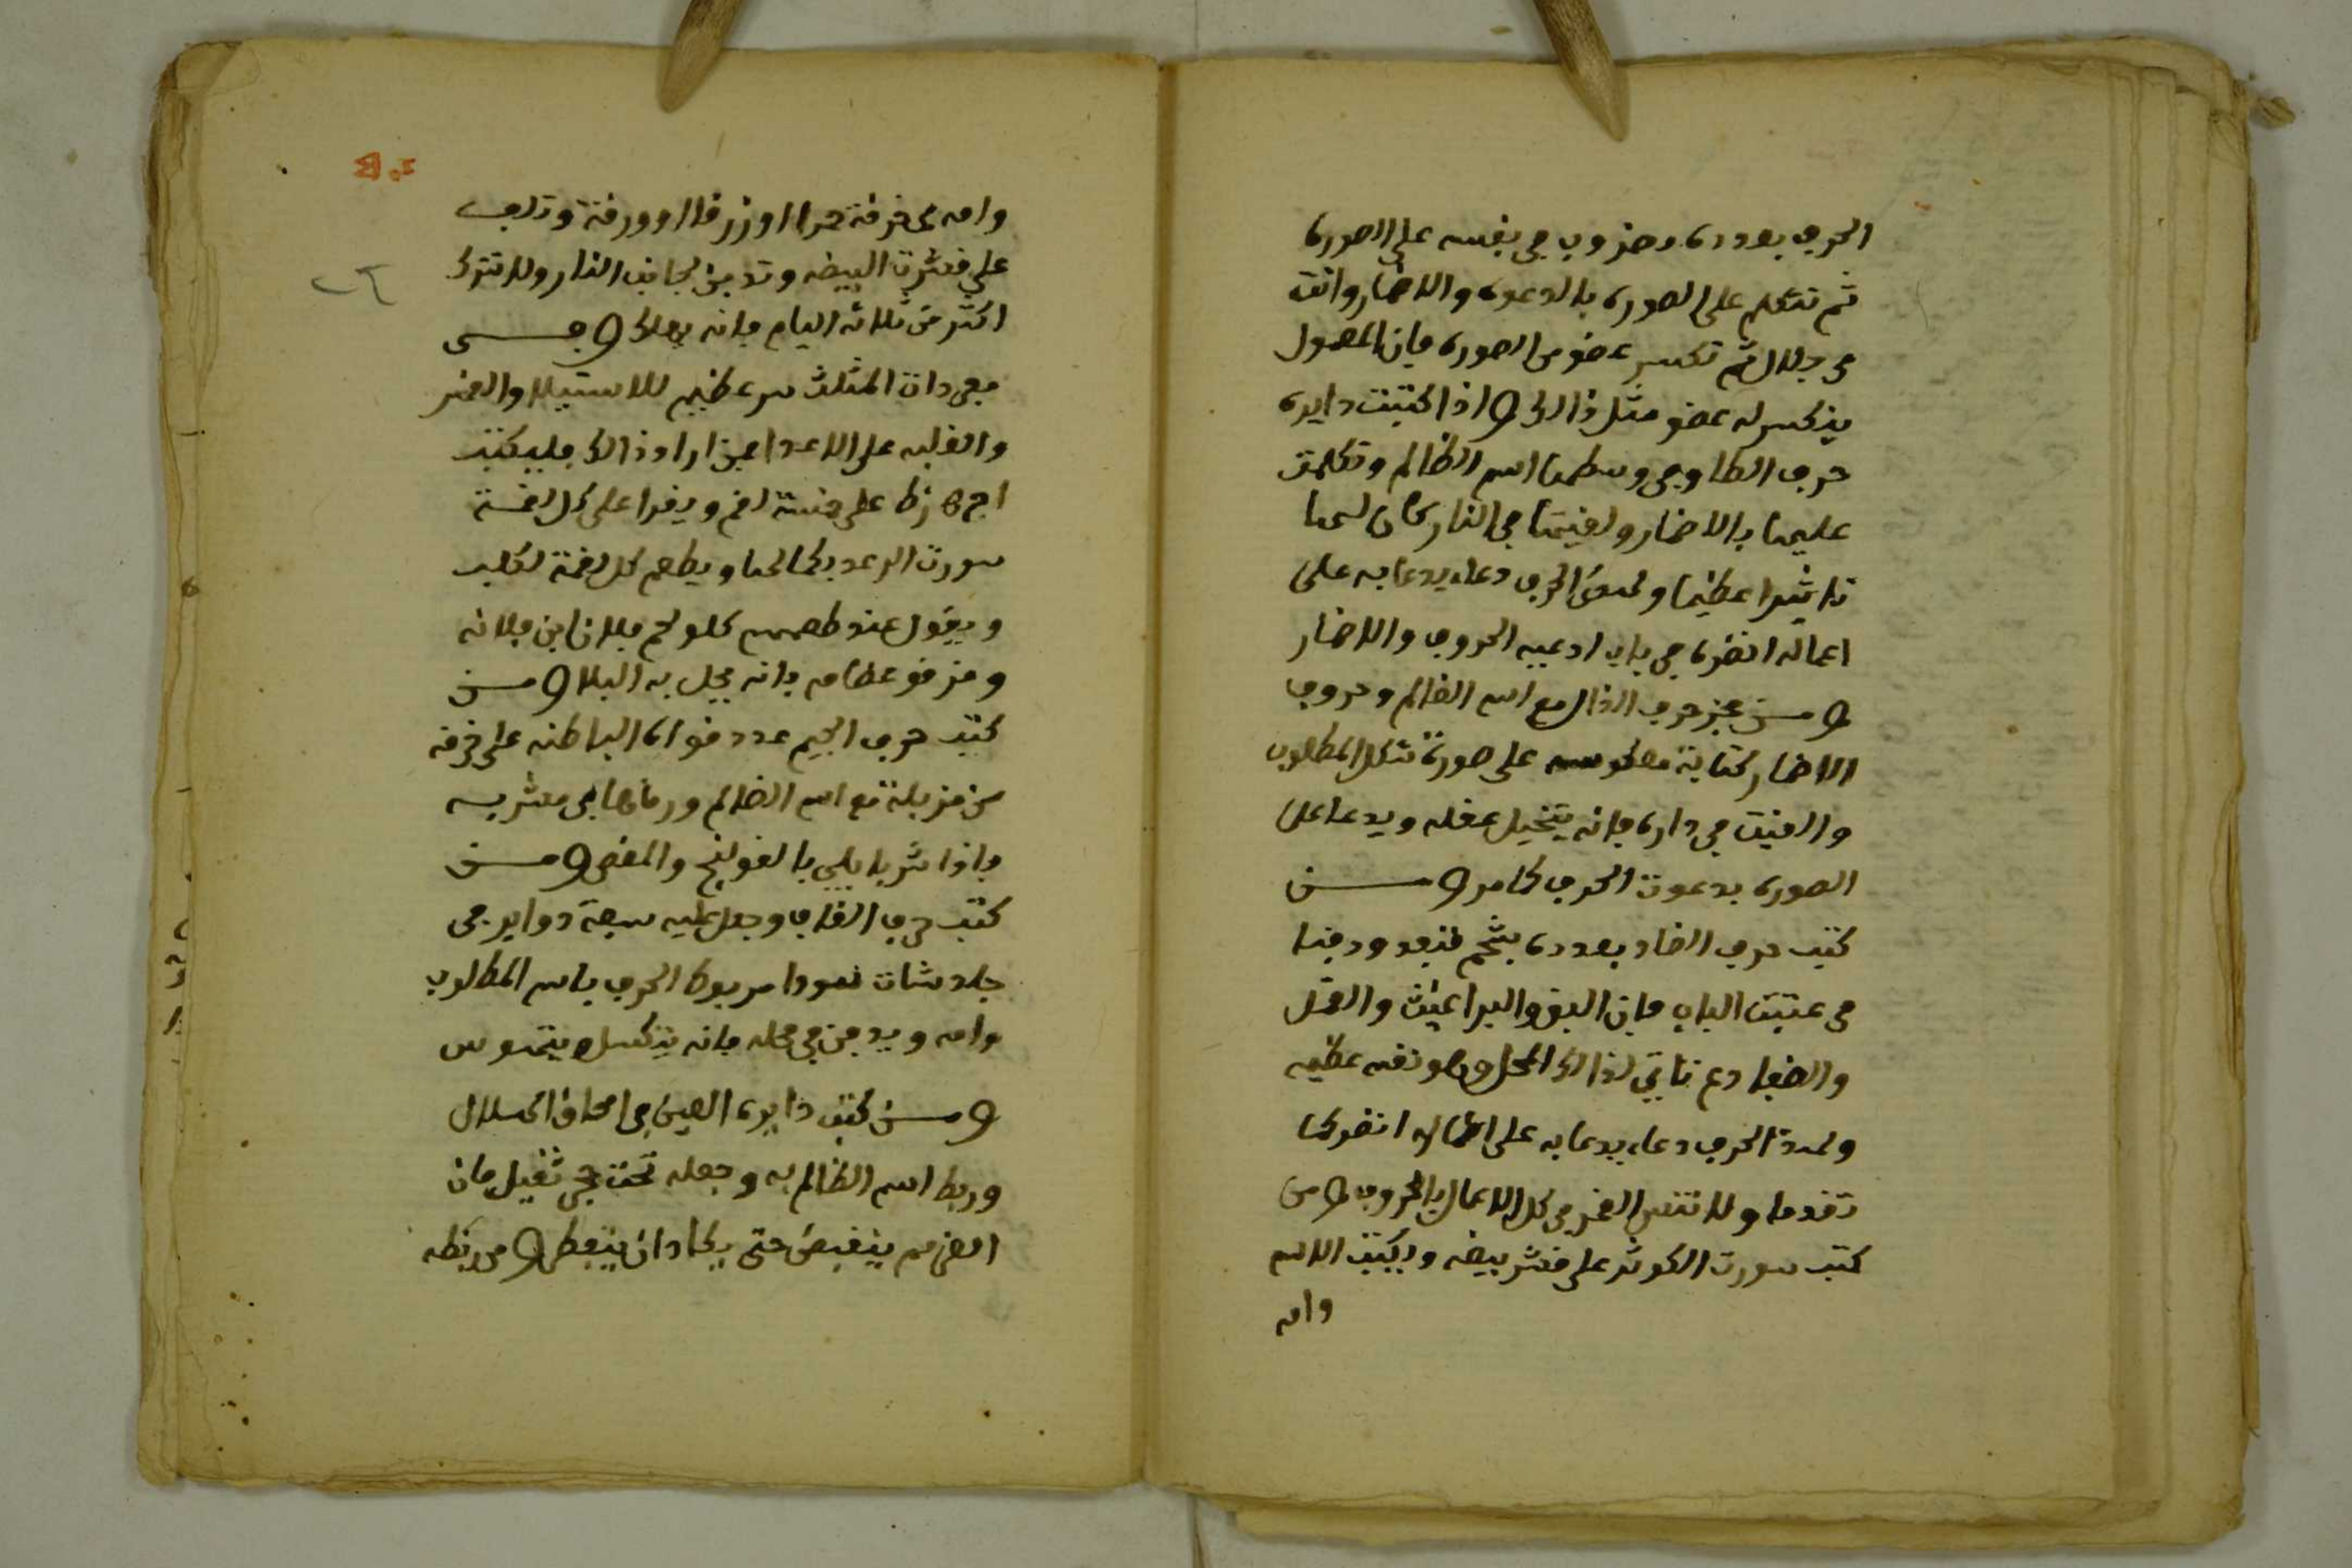 الحرف بعدده مضروب في نفسه على الصوره
ثم تتكلم على الصوره بالدعوه والاضمار وانت
في جلال ثم تكسر عضو من الصوره فان المعمول
ينكسر له عضو مثل ذالك واذا كتبت دايره
حرف الطا وفي وسطها اسم الظالم وتكلمت
عليها بالاضمار ولقيتها في النار كان لها
تاثيرا عظيما ولهذا الحرف دعاء يدعا به على
اعماله انظره في باب ادعيه الحروف والاضمار
ومن عجز حرف الذال مع اسم الظالم وحروف
الاضمار كتابة معكوسه على صورة شكل المطلوب
والقيت في داره فانه يتخيل عقله ويدعا على
الصوره بدعوت الحرف كما مر ومن
كتب حرف الضاد بعدده بشحم قنفد ودفنها
في عتبت الباب فان البق والبراغيث والقمل
والضفادع تاتي لذالك المحل وهو نقمه عظيمه
ولهذا الحرف دعاء يدعا به على اعماله انظر كما
تقدما ولا تنس العجز في كل الاعمال بالحروف ومن
كتب سورت الكوثر على قشر بيضه ويكتب الاسم
وامه
وامه في خرقة حمرا او زرقا او ورقة وتلف
على قشرت البيضه وتدفن لجانب النار ولا تترك
اكثر من ثلاثه اليام فانه يهلك و
مفردات المثلث سر عظيم للاستيلا و
والغلبه على الاعدا فمن اراد ذالك فليكتب
اج ه زط على خمسة لقم ويقرا على كل لقمة
سورت الرعد بكمالها ويطعم كل لقمة لكلب
ويقول عند طعمهم كلو لحم فلان ابن فلانه
ومزقو عظامه فانه يحل به البلا ومن
كتب حرف الجيم عدد قواه الباطنه على خرقه
من مزبلة مع اسم الظالم ورماها في مشربه
فاذا شربا بلي بالقولنج والمغص ومن
كتب حرف القاف وجعل عليه سبعة دواير في
جلد شات سودا مربوط الحرف باسم المطلوب
وامه ويدفن في محله فانه ينكسل ويتهوس
ومن كتب دايره العين في امحاق الهلال
وربط اسم الظالم به وجعله تحت حجر ثقيل فان
ينقبض حتى يكاد ان ومن ربطه